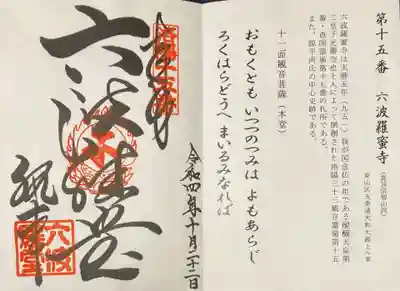 第十五番　六波羅蜜寺
（真言宗智山派）
東山区五条通大和大路上ル東
六波羅蜜寺は天暦五年（九五一）我が国念仏の祖である醍醐天皇第
二皇子光勝空也上人によって開創された洛陽三十三観音霊場第十五
番・西国霊場第十七番の札所である。
また、源平両氏の中心史跡である。
十一面観音菩薩（本堂）
おもくとも　いつつのつみは　よもあらじ
ろくはらどうへ　まいるみなれば
令和四年十月二十二日
六波羅堂